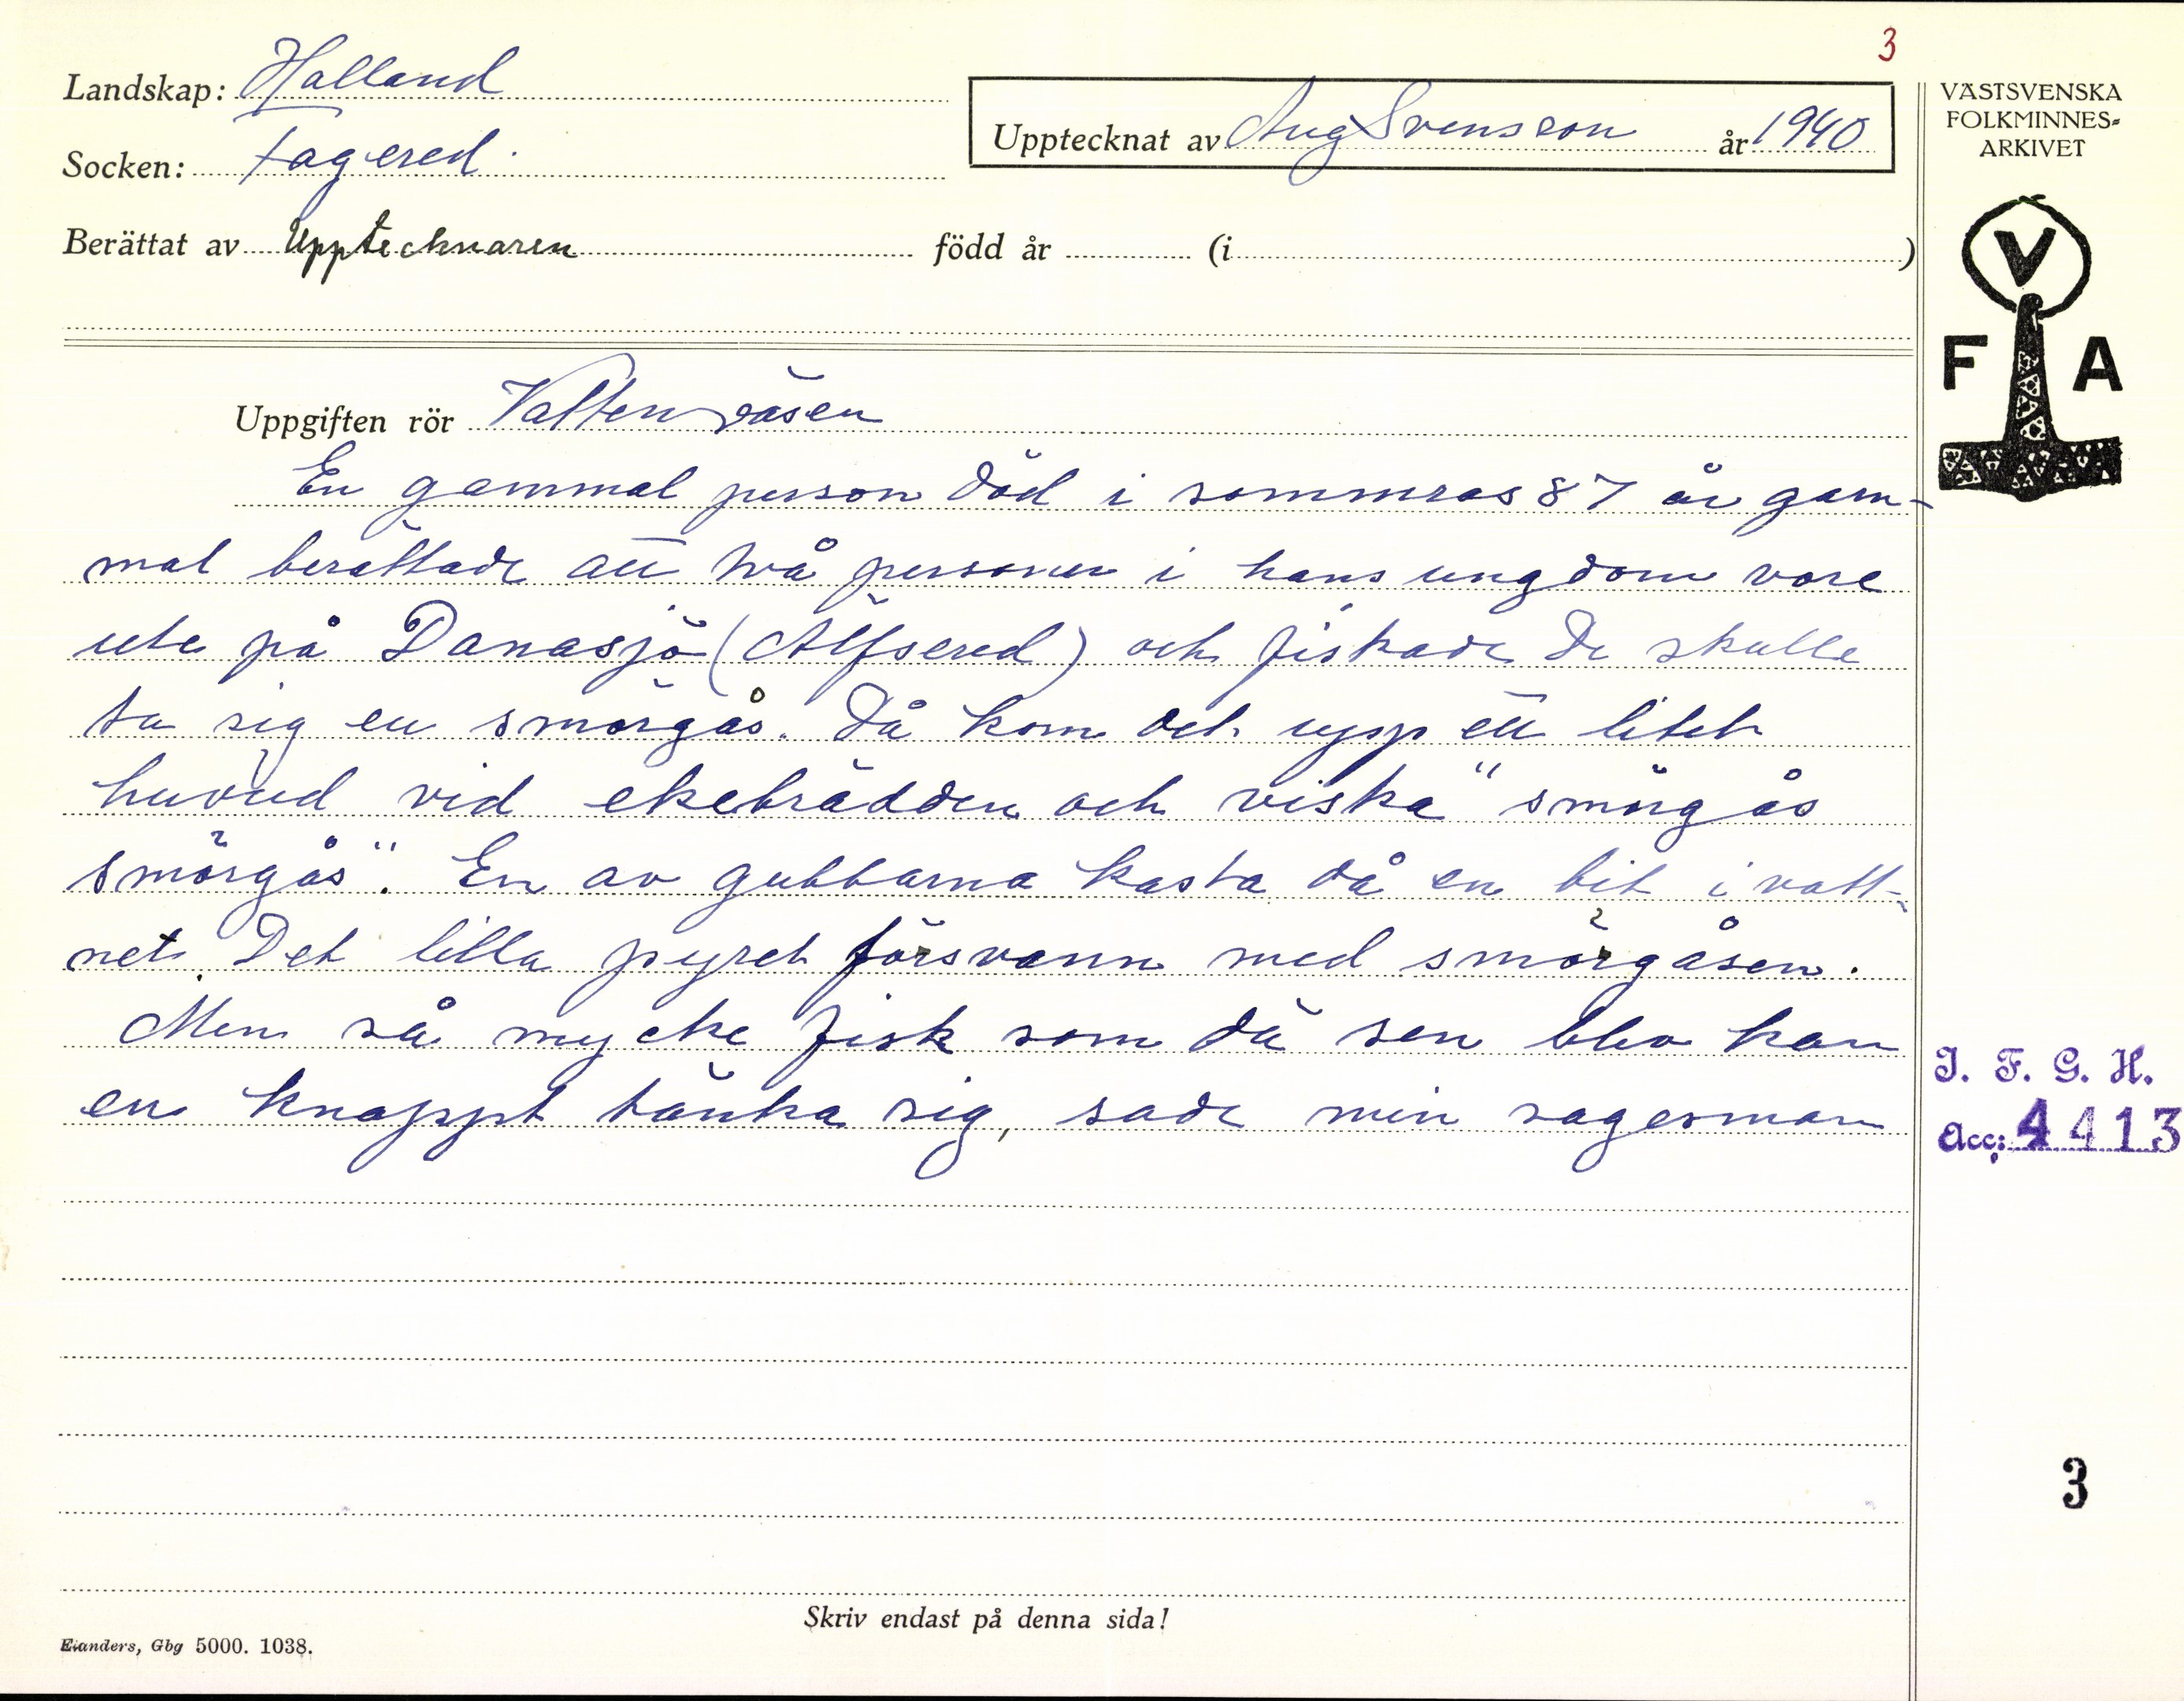 3
Landskap: Halland
Socken: Fagered.
Upptecknat av Aug Svensson år 1940
Berättat av Upptecknaren född år (i )
VÄSTSVENSKA
FOLKMINNES-
ARKIVET
V
F A
Uppgiften rör Vattenväsen
En gammal person död i sommras 87 år gam-
mal berättade att två personer i hans ungdom vore
ute på Danasjö (Älfsered) och fiskade De skulle
ta sig en smörgås. Då kom det upp ett litet
huvud vid ekebrädden och viska "smörgås
smörgås". En av gubbarna kasta då en bit i vatt-
net. Det lilla pyret försvann med smörgåsen.
Men så mycke fisk som dä sen blev kan
en knappt tänka sig, sade min sagesman
I. F. G. H.
Acc: 4413
3
Skriv endast på denna sida!
Elanders, Gbg 5000. 1038.